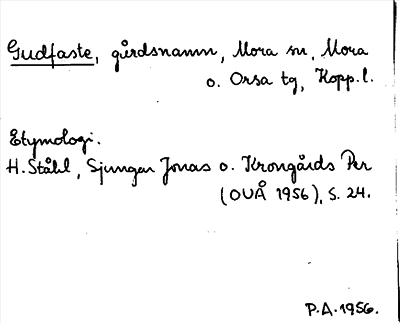 Gudfaste, gårdsnamn, Mora sn, Mora
o. Orsa tg, Kopp.l.
Etymologi.
H. Ståhl, Sjungar Jonas o. Krongårds Per
(OUÅ 1956), S. 24.
P.A. 1956.